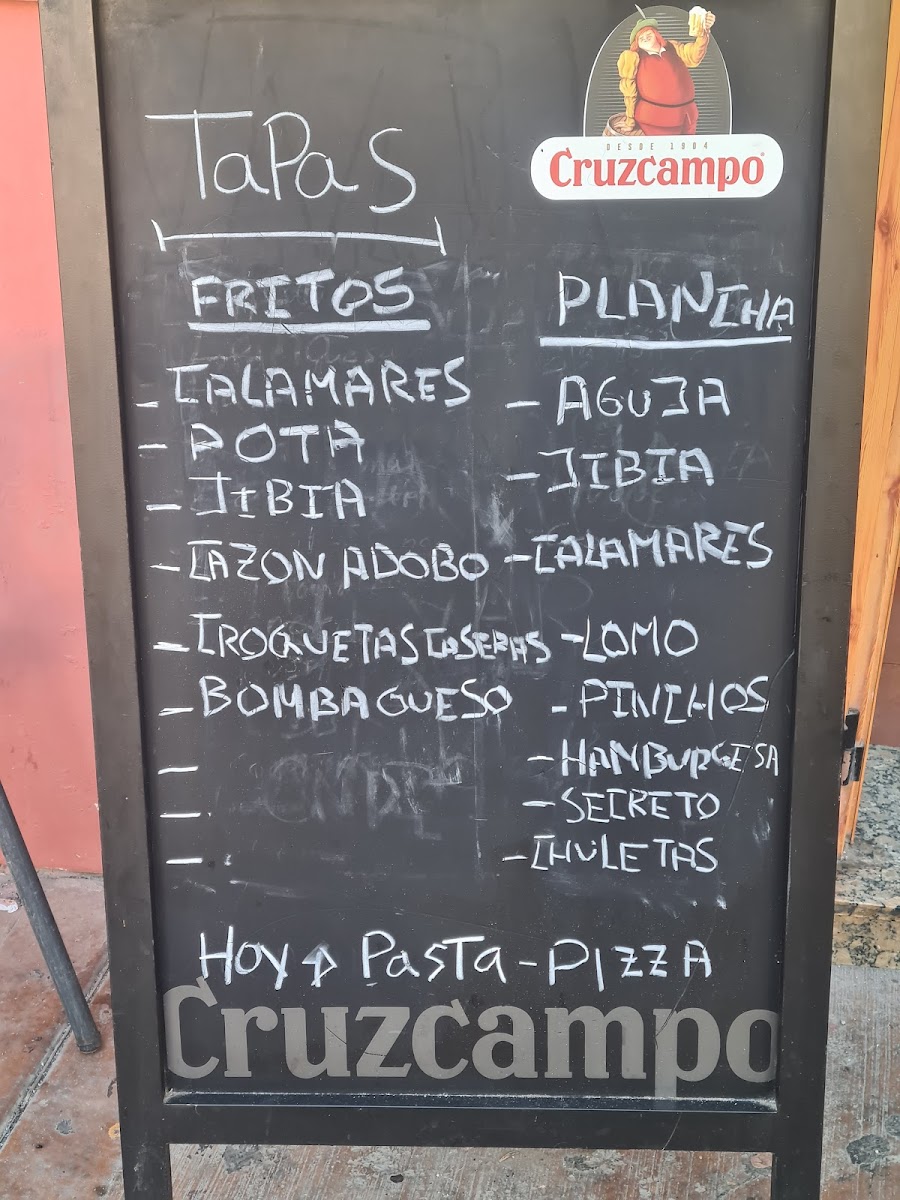 TaPas
DESDE 1904
Cruzcampo
FRITOS
- CALAMARES
- POTA
- JIBIA
- CAZON ADOBO
- CROQUETAS CASERAS
- BOMBA QUESO
-
-
-
PLANCHA
- AGUJA
- JIBIA
- CALAMARES
- LOMO
- PINCHOS
- HAMBURGESA
- SECRETO
- CHULETAS
HOY → PASTA - PIZZA
Cruzcampo